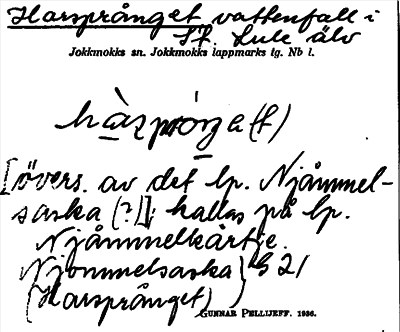 Harsprånget vattenfall i
St. Lule älv
Jokkmokks sn. Jokkmokks lappmarks tg. Nb l.
hàʒprónga(t)
[övers. av det lp. Njåmmel-
saska (?)]; kallas på lp.
Njåmmelkårtje.
Njommelsaska } G 21
(Harsprånget)
GUNNAR PELLIJEFF. 1936.